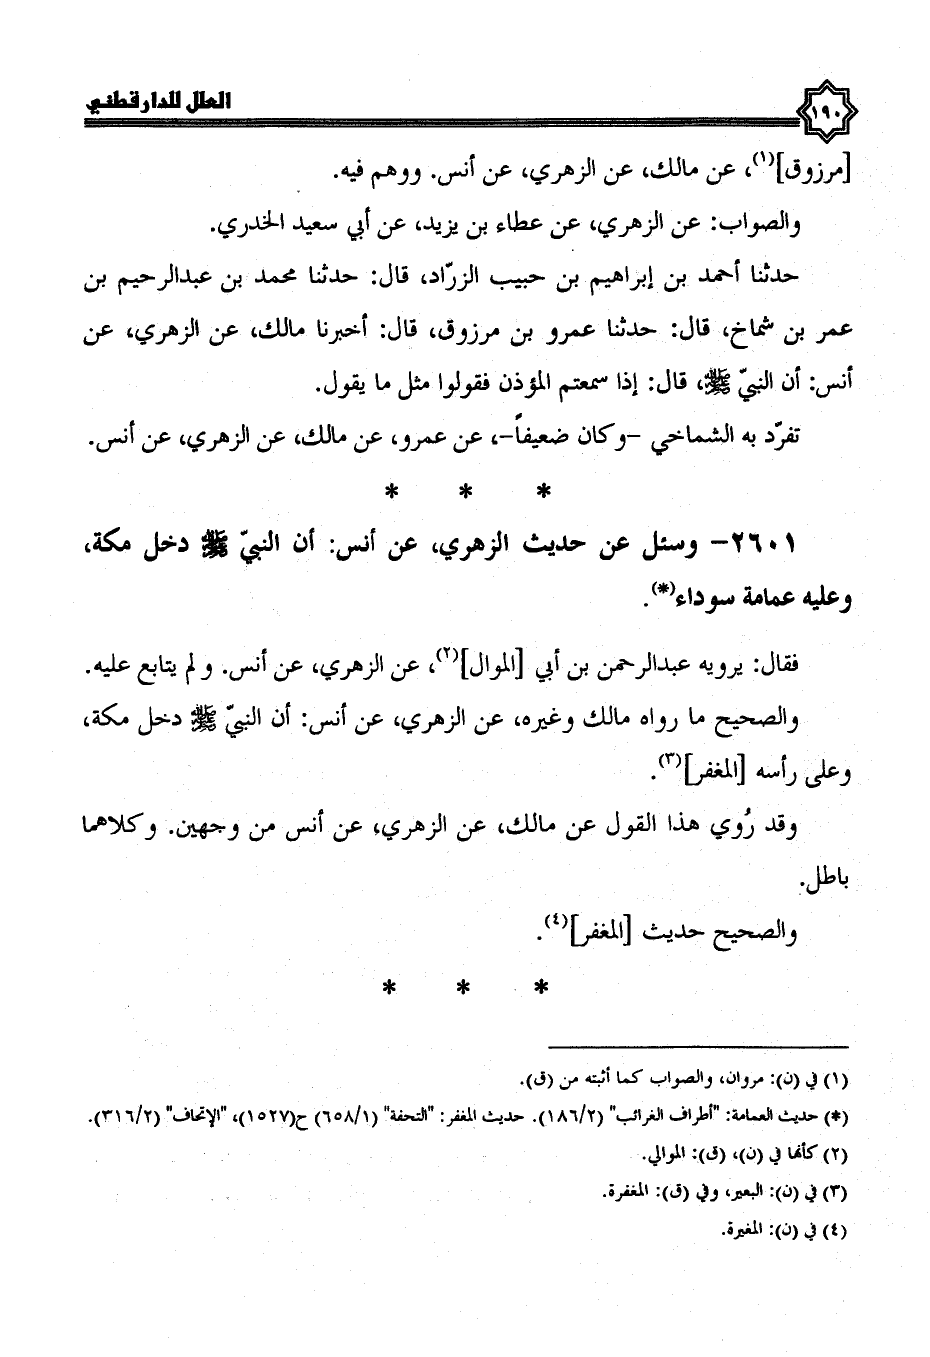 العلل للدارقطني
١٩٠
[مرزوق](١)، عن مالك، عن الزهري، عن أنس. ووهم فيه.
والصواب: عن الزهري، عن عطاء بن يزيد، عن أبي سعيد الخدري.
حدثنا أحمد بن إبراهيم بن حبيب الزرّاد، قال: حدثنا محمد بن عبدالرحيم بن
عمر بن شماخ، قال: حدثنا عمرو بن مرزوق، قال: أخبرنا مالك، عن الزهري، عن
أنس: أن النبيّ ﷺ، قال: إذا سمعتم المؤذن فقولوا مثل ما يقول.
تفرّد به الشماخي -وكان ضعيفاً-، عن عمرو، عن مالك، عن الزهري، عن أنس.
* * *
٢٦٠١- وسئل عن حديث الزهري، عن أنس: أن النبيّ ﷺ دخل مكة،
وعليه عمامة سوداء(*).
فقال: يرويه عبدالرحمن بن أبي [الموال](٢)، عن الزهري، عن أنس. ولم يتابع عليه.
والصحيح ما رواه مالك وغيره، عن الزهري، عن أنس: أن النبيّ ﷺ دخل مكة،
وعلى رأسه [المغفر](٣).
وقد رُوي هذا القول عن مالك، عن الزهري، عن أنس من وجهين. وكلاهما
باطل.
والصحيح حديث [المغفر](٤).
* * *
(١) في (ن): مروان، والصواب كما أثبته من (ق).
(*) حديث العمامة: "أطراف الغرائب" (١٨٦/٢). حديث المغفر: "التحفة" (٦٥٨/١) ح(١٥٢٧)، "الإتحاف" (٣١٦/٢).
(٢) كأنها في (ن)، (ق): الموالي.
(٣) في (ن): البعير، وفي (ق): المغفرة.
(٤) في (ن): المغيرة.